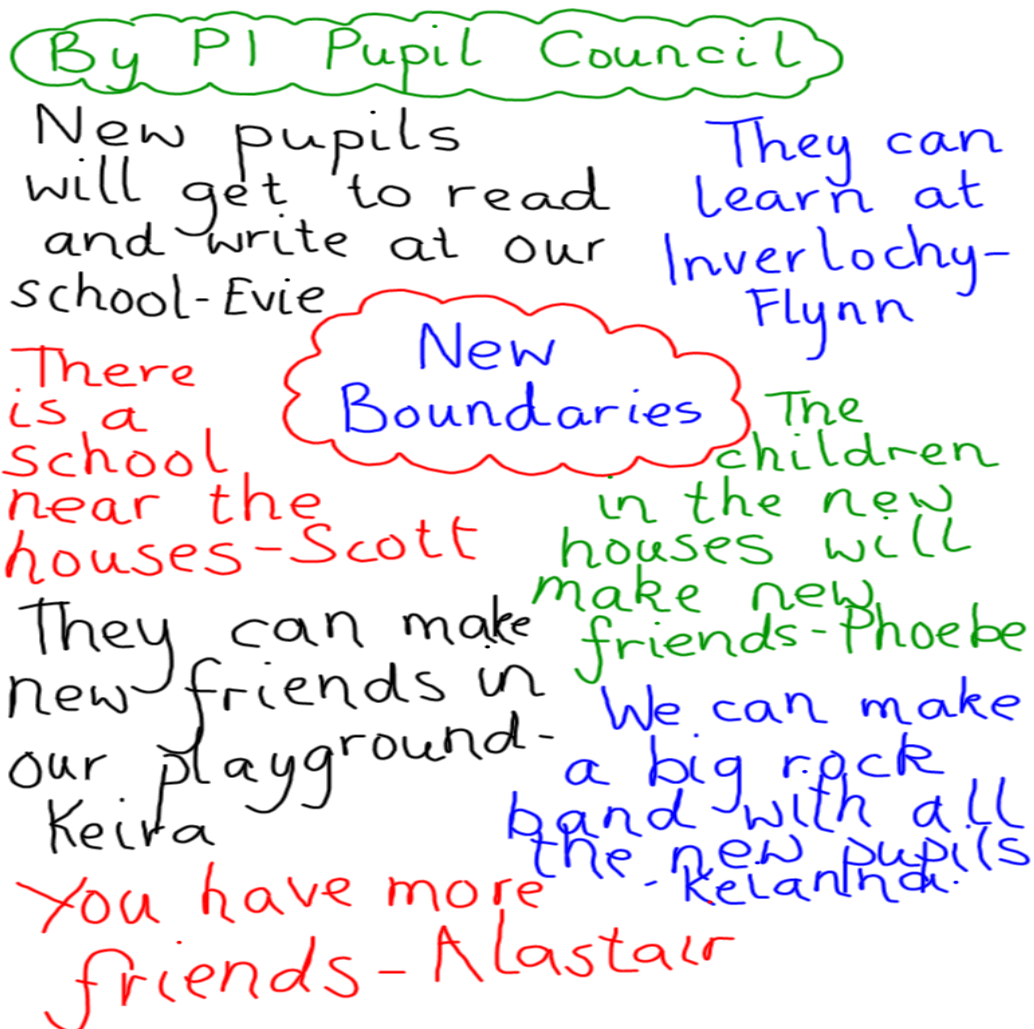 By P1 Pupil Council
New pupils
will get to read
and write at our
school-Evie
They can
learn at
Inverlochy-
Flynn
New
Boundaries
There
is a
school
near the
houses-Scott
The
children
in the new
houses will
make new
friends-Phoebe
They can make
new friends in
our playground-
Keira
We can make
a big rock
band with all
the new pupils
- Keianna.
You have more
friends-Alastair